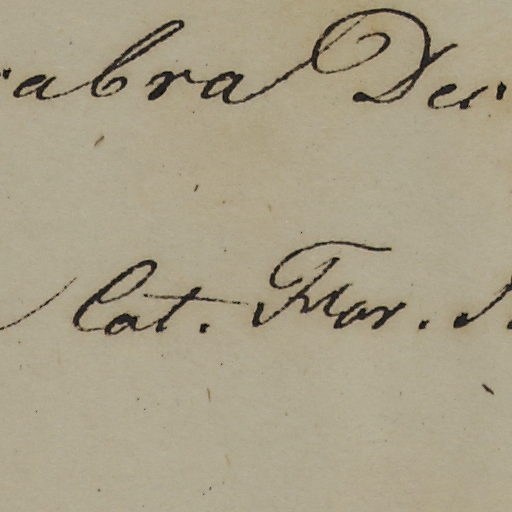 abra Des
Cat. Flor.